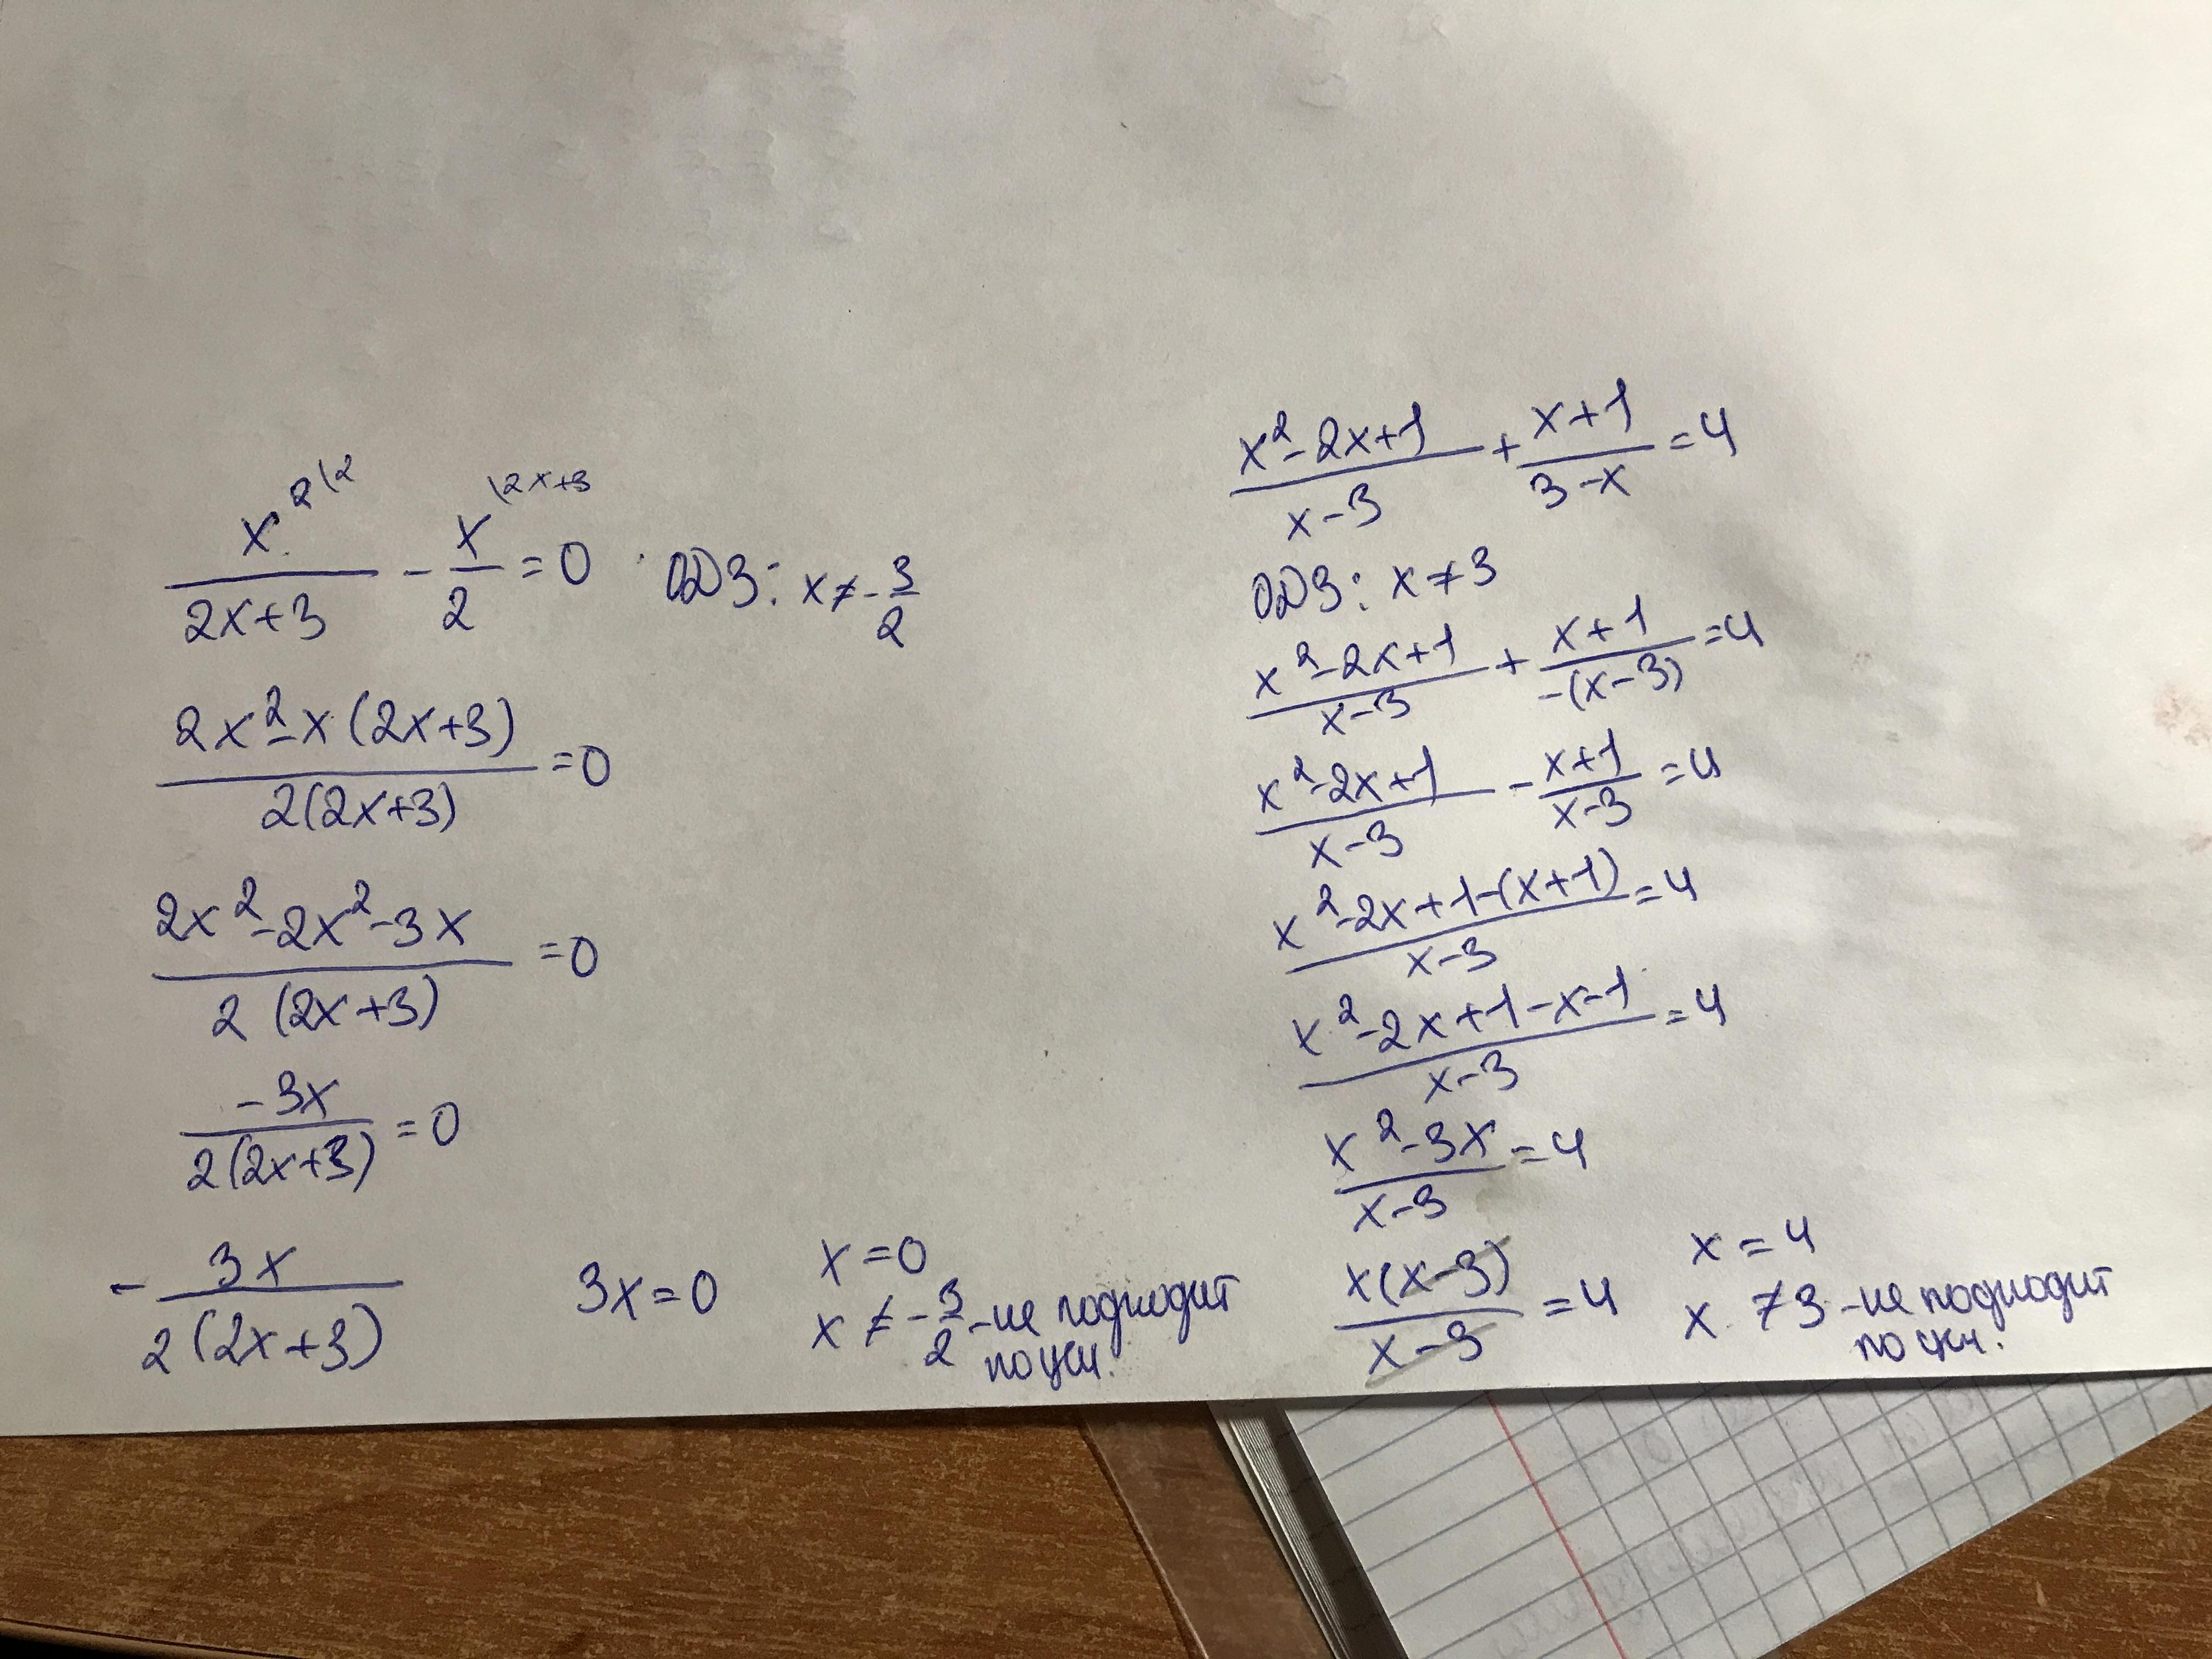 x²\2 / 2x+3 - x\2x+3 / 2 = 0 ОДЗ: x ≠ -3/2
2x²-x(2x+3) / 2(2x+3) = 0
2x²-2x²-3x / 2(2x+3) = 0
-3x / 2(2x+3) = 0
- 3x / 2(2x+3) 3x=0 x=0
x ≠ -3/2 - не подходит
по усл.
x²-2x+1 / x-3 + x+1 / 3-x = 4
ОДЗ: x ≠ 3
x²-2x+1 / x-3 + x+1 / -(x-3) = 4
x²-2x+1 / x-3 - x+1 / x-3 = 4
x²-2x+1-(x+1) / x-3 = 4
x²-2x+1-x-1 / x-3 = 4
x²-3x / x-3 = 4
x(x-3) / x-3 = 4 x=4
x ≠ 3 - не подходит
по усл.